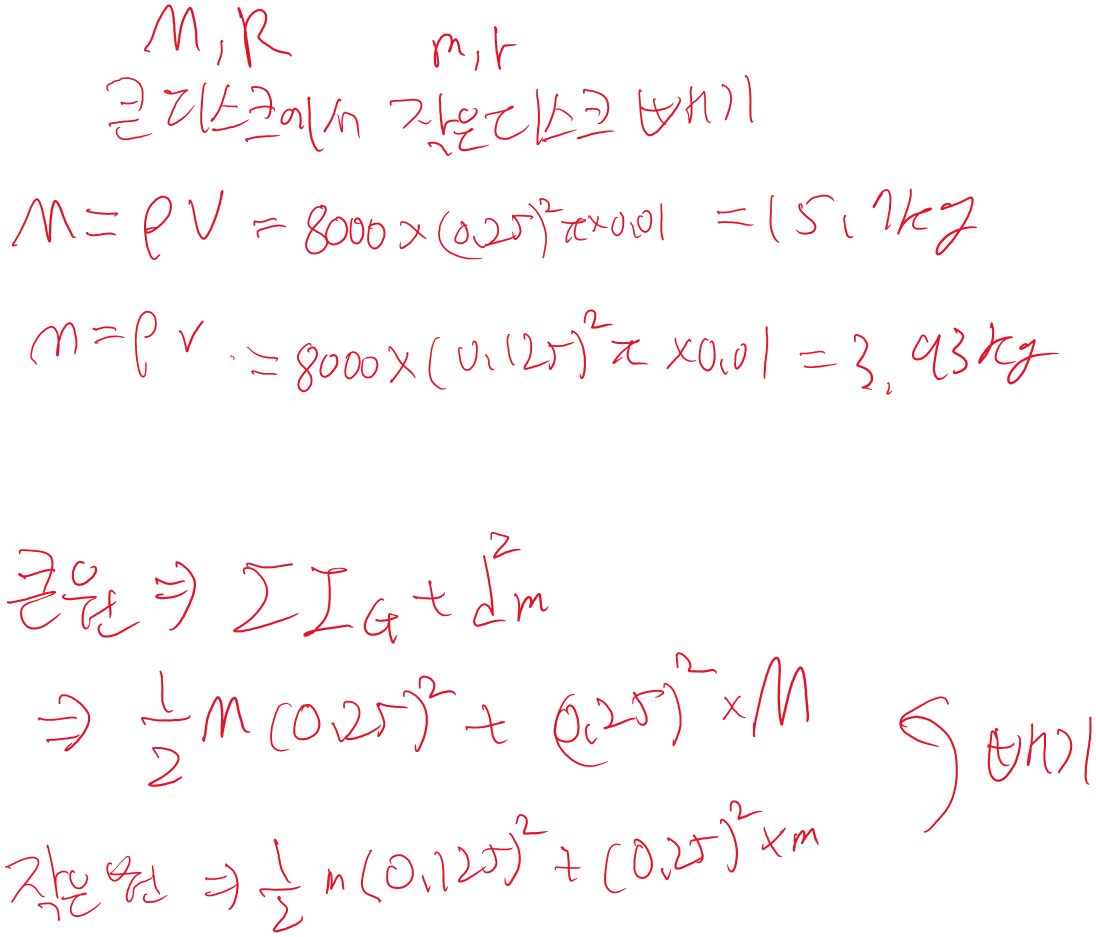 M, R m, r
큰 디스크에서 작은디스크 빼기
M = ρV = 8000×(0.25)²π×0.01 = 15.7kg
m = ρV = 8000×(0.125)²π×0.01 = 3.93kg
큰원 ⇒ ΣI_G + d²m
⇒ 1/2 M(0.25)² + (0.25)²×M
빼기
작은원 ⇒ 1/2 m(0.125)² + (0.25)²×m